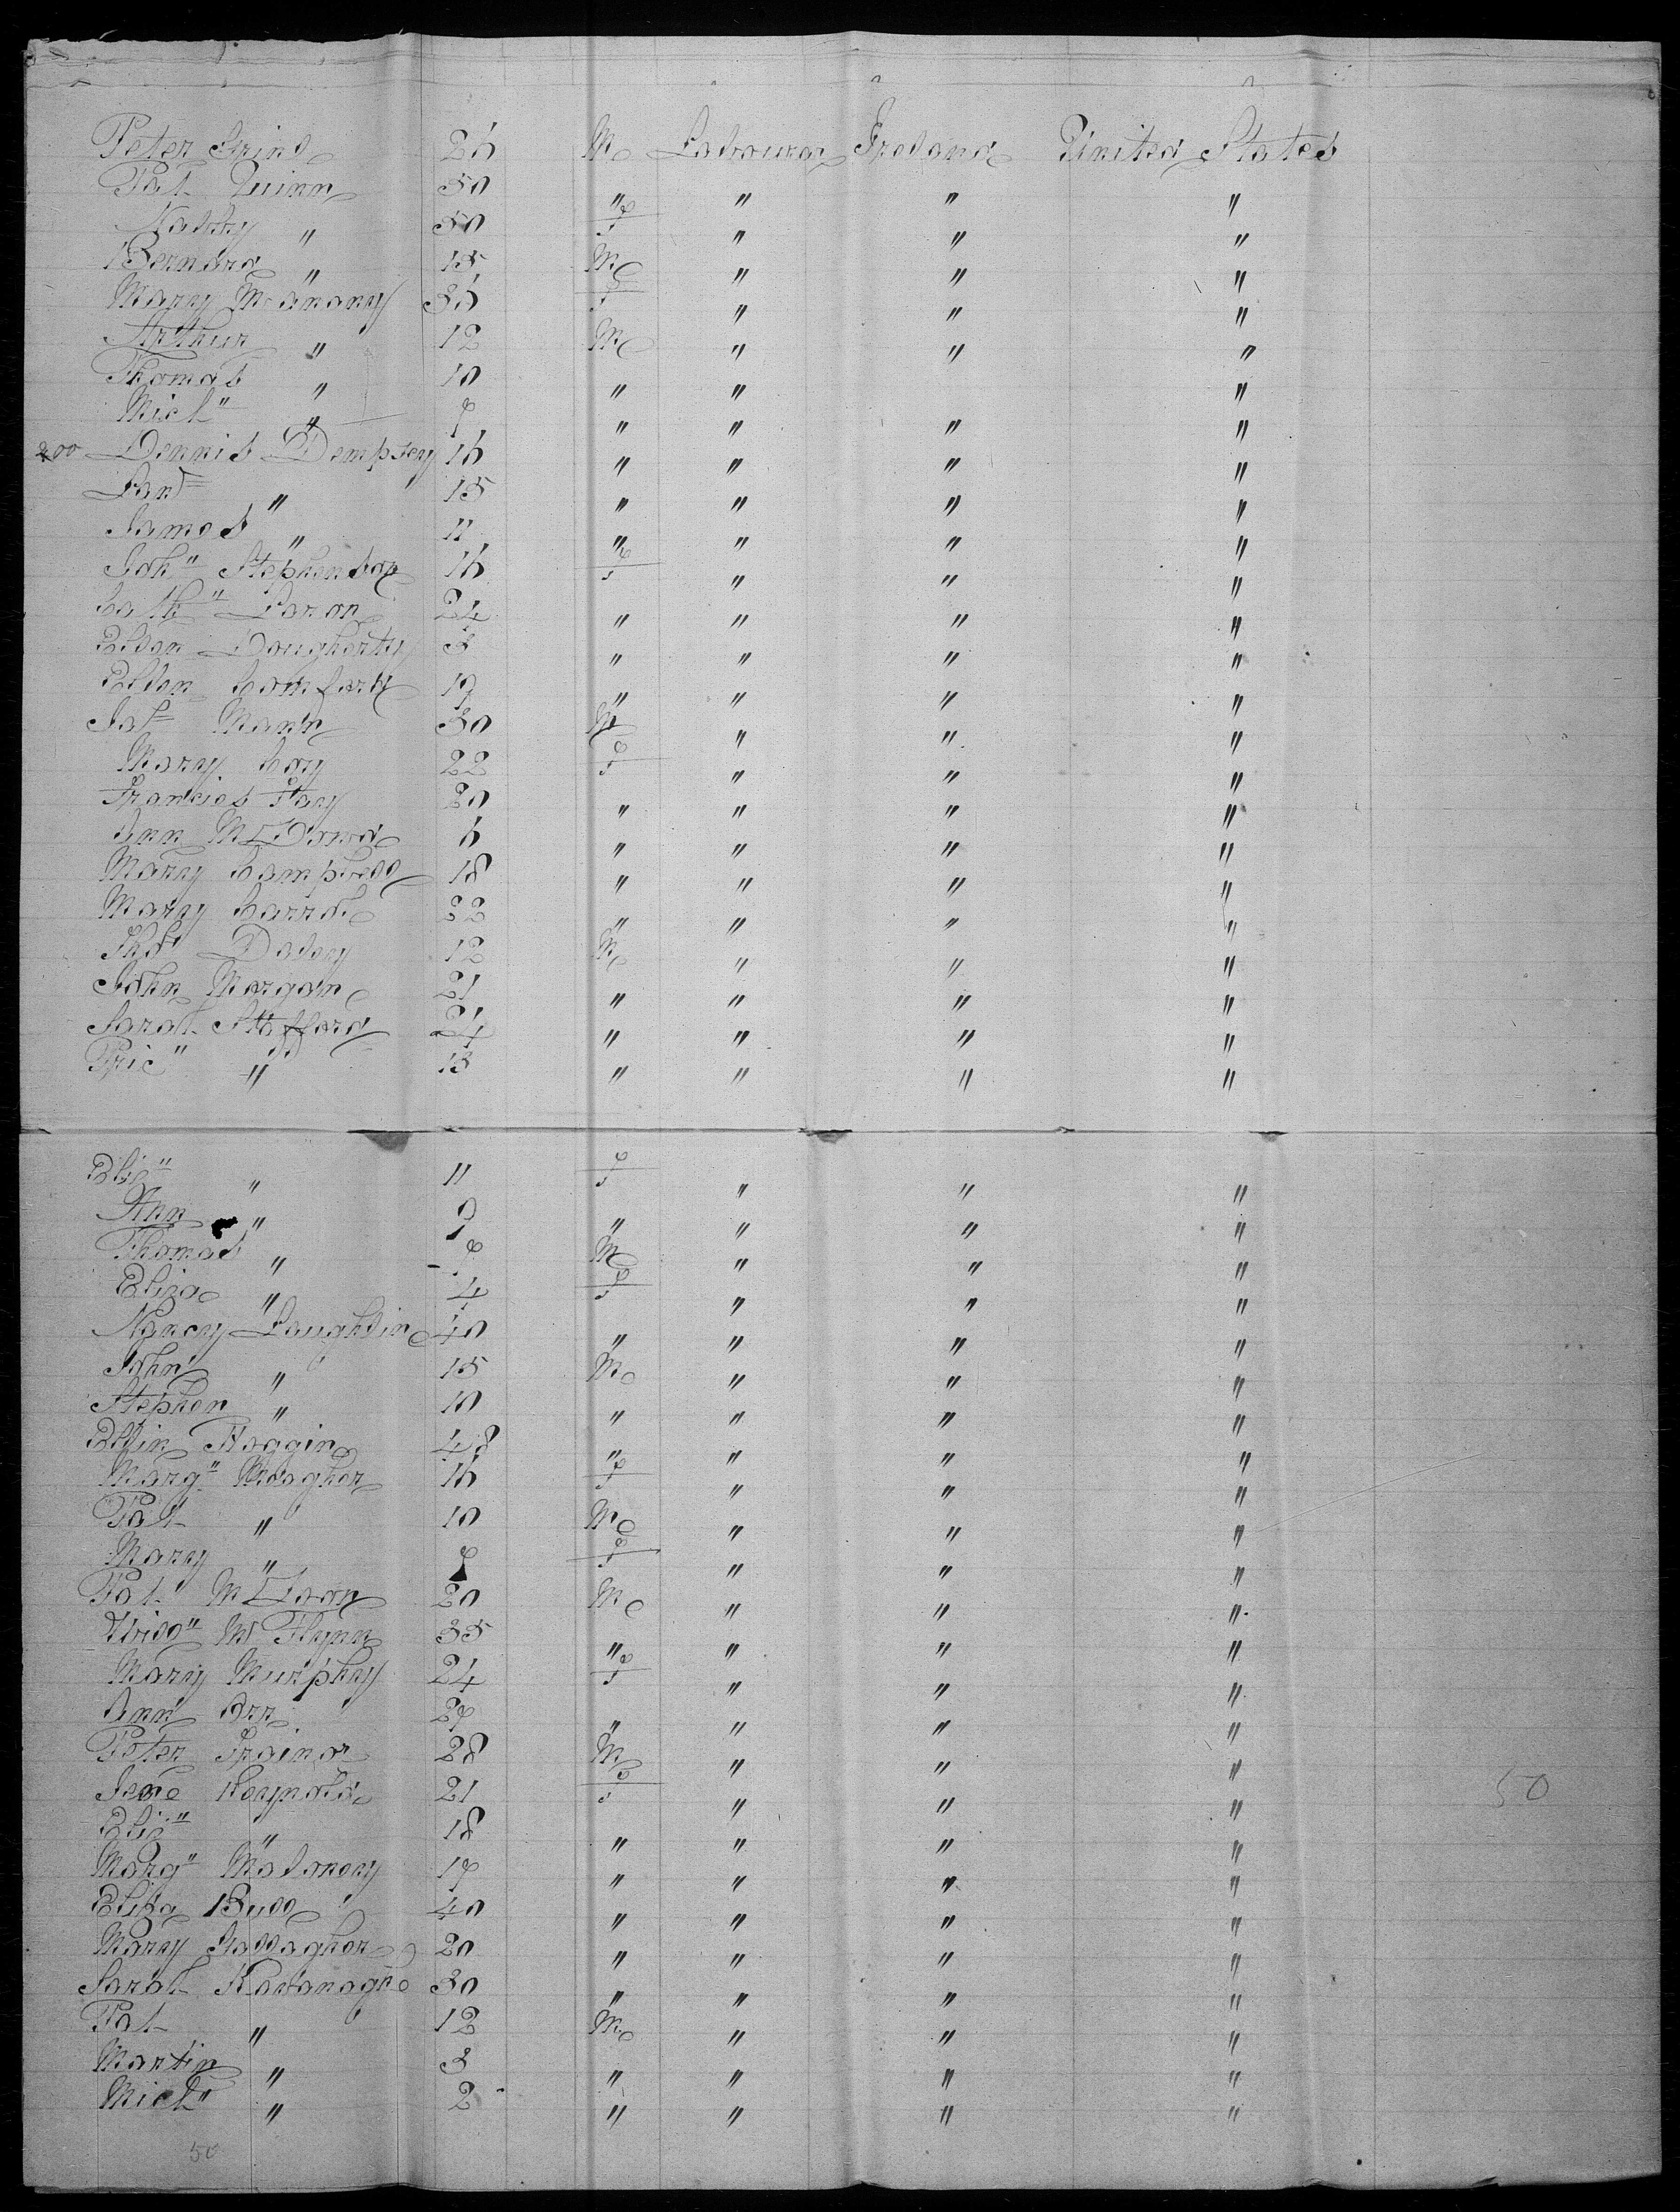 Peter 26 M Labourer Ireland United States
Pat Quinn 50 " " " "
Nabby " 50 F " " "
Bernard " 15 M " " "
Mary McAnany 36 F " " "
Arthur " 12 M " " "
Thomas " 10 " " "
Mich" " 7 " " " "
200 Dennis Dempsey 16 " " " "
" 15 " " " "
James " 11 " " " "
Joh" Stephenson 16 F " " "
Cath" 24 " " " "
Ellen Dougherty 3 " " " "
Ellen Comford 19 " " " "
Pat Mann 30 M " " "
Mary Coy 22 F " " "
Francies Fay 20 " " " "
Ann 6 " " " "
Mary Campbell 18 " " " "
Mary 22 " " " "
Thos Daley 12 M " " "
John Morgan 21 " " " "
Sarah Stafford 24 " " " "
" 13 " " " "
Eliz" " 11 F " " "
Ann " 9 " " " "
Thomas " 7 M " " "
Eliza " 4 F " " "
Nancy Laughlin 40 " " " "
John " 15 M " " "
Stephen " 10 " " " "
Ellin Hoggin 48 " " " "
Marg" Meagher 16 F " " "
Pat " 10 M " " "
Mary " 7 F " " "
Pat 20 M " " "
Will" Mc Flynn 35 " " " "
Mary Murphy 24 F " " "
Ann Orr 27 " " " "
Peter Trainor 28 M " " "
Jane Reynolds 21 F " " " 50
Eliz" " 18 " " " "
Marg" Maloney 17 " " " "
Eliza Bull 40 " " " "
Mary Gallagher 20 " " " "
Sarah Kavanagh 30 " " " "
Pat " 12 M " " "
Martin " 3 " " " "
Mich" " 2 " " " "
50